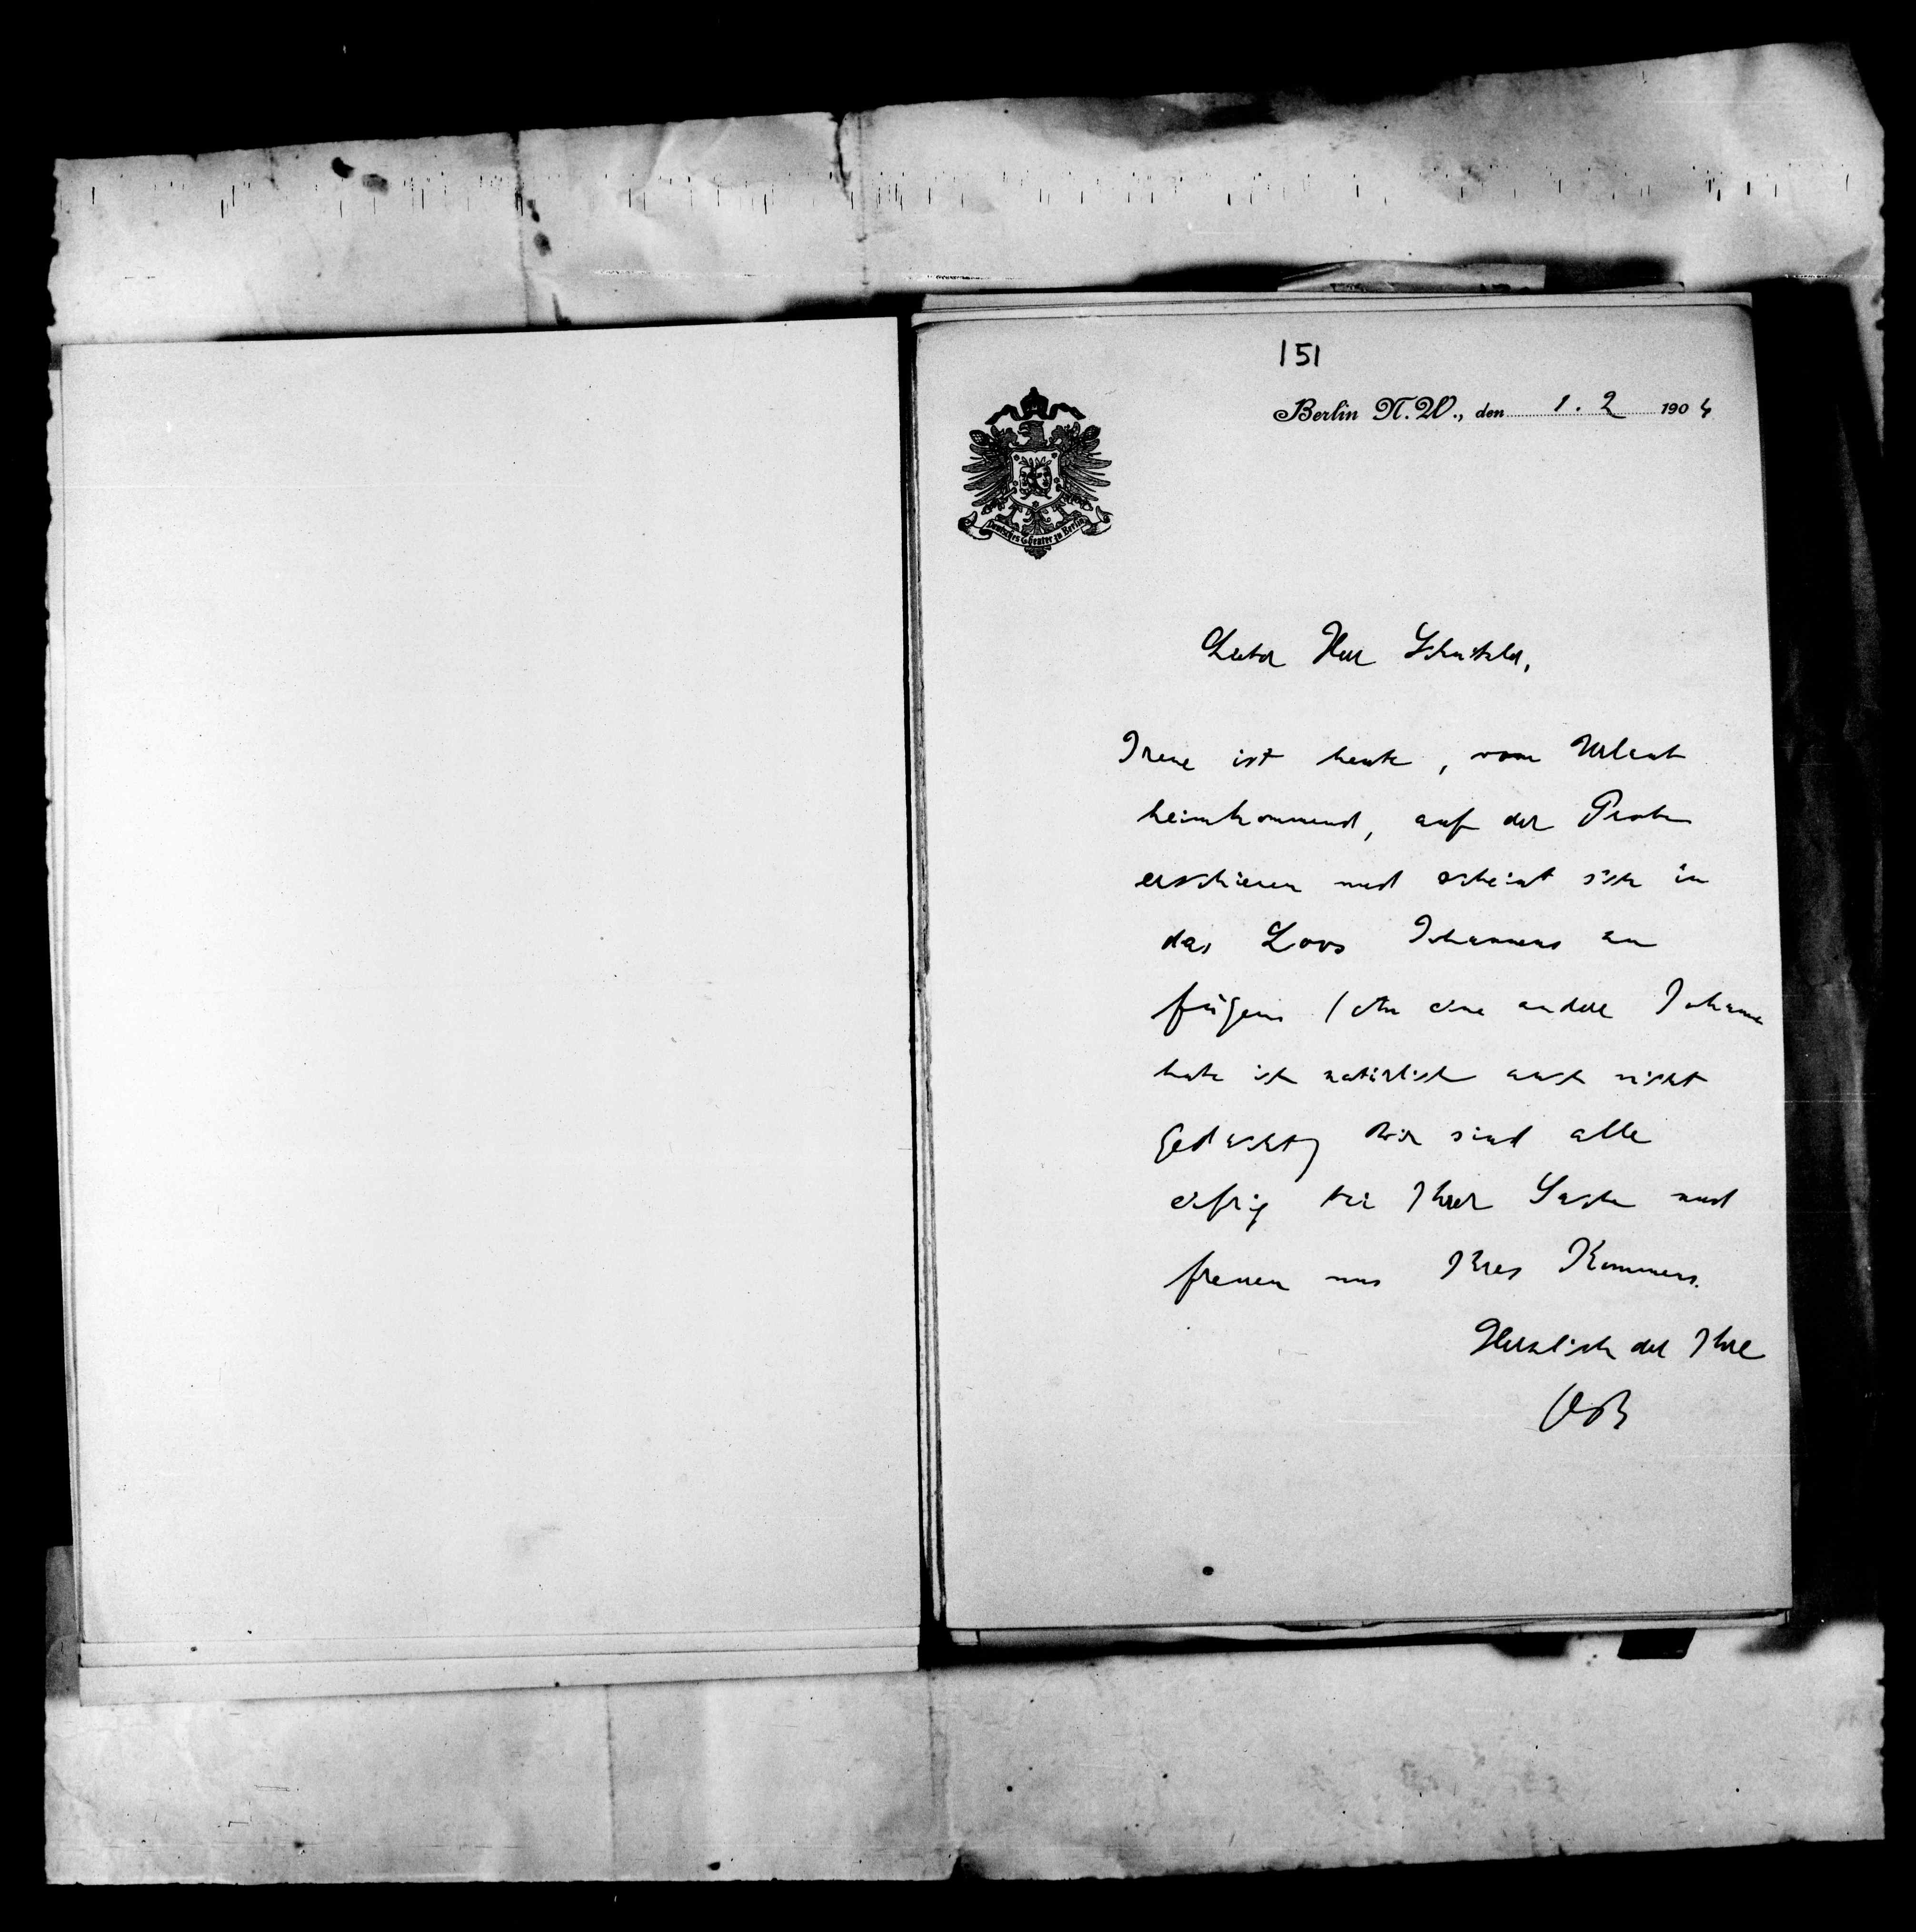 151
Berlin N.W., den 1. 2 1904
Deutsches Theater zu Berlin
Lieber Herr Schnitzler,
Irene ist heute, vom Urlaub
heimkommend, auf der Probe
erschienen und scheint sich in
das Loos Johannens zu
fügen (an eine andere Johanna
habe ich natürlich auch nicht
gedacht) Wir sind alle
eifrig bei Ihrer Sache und
freuen uns Ihres Kommens.
Herzlich der Ihre
OB